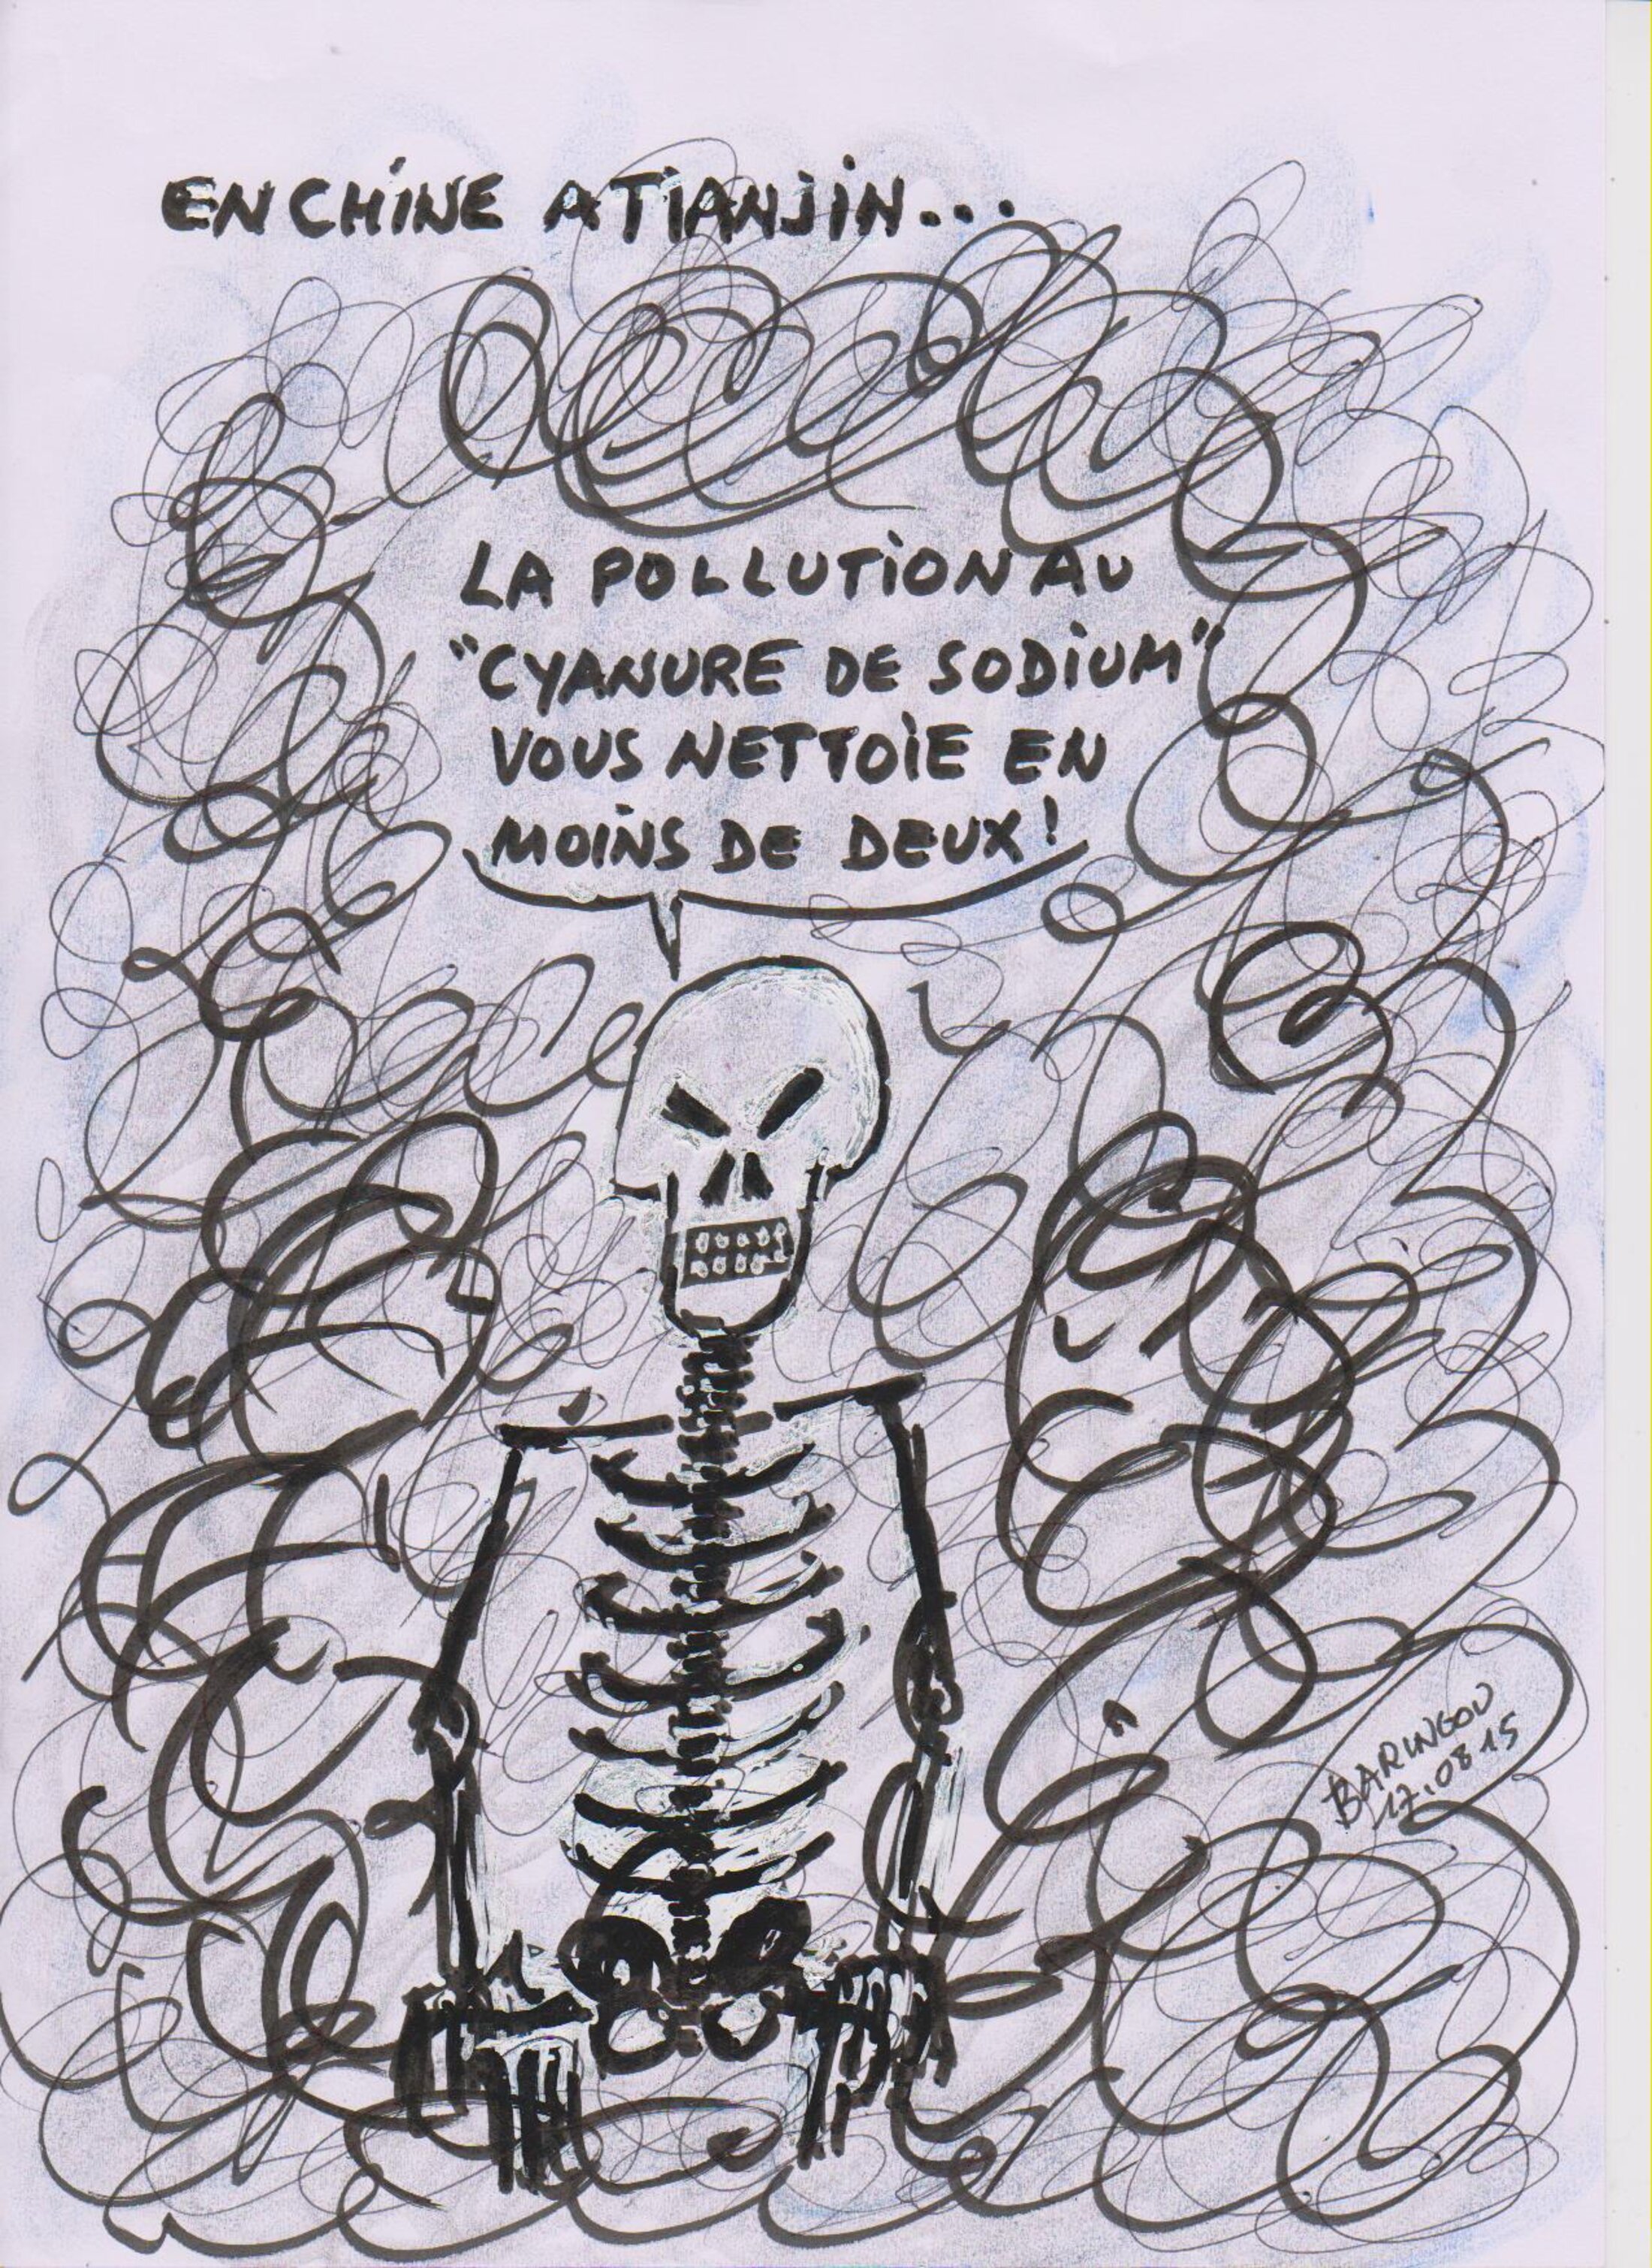 EN CHINE A TIANJIN...
LA POLLUTION AU
"CYANURE DE SODIUM"
VOUS NETTOIE EN
MOINS DE DEUX!
BARINGOU
17.08.15